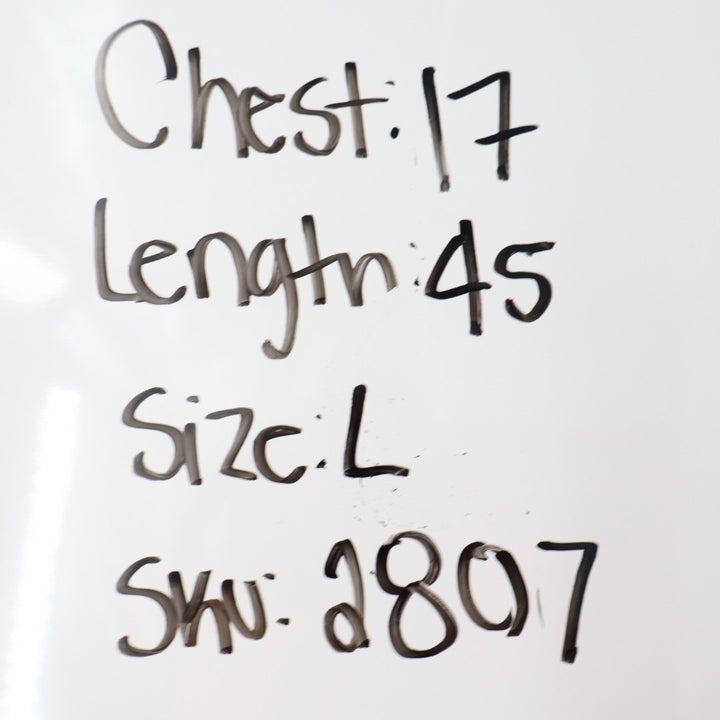 Chest: 17
Length: 45
Size: L
Sku: 2807